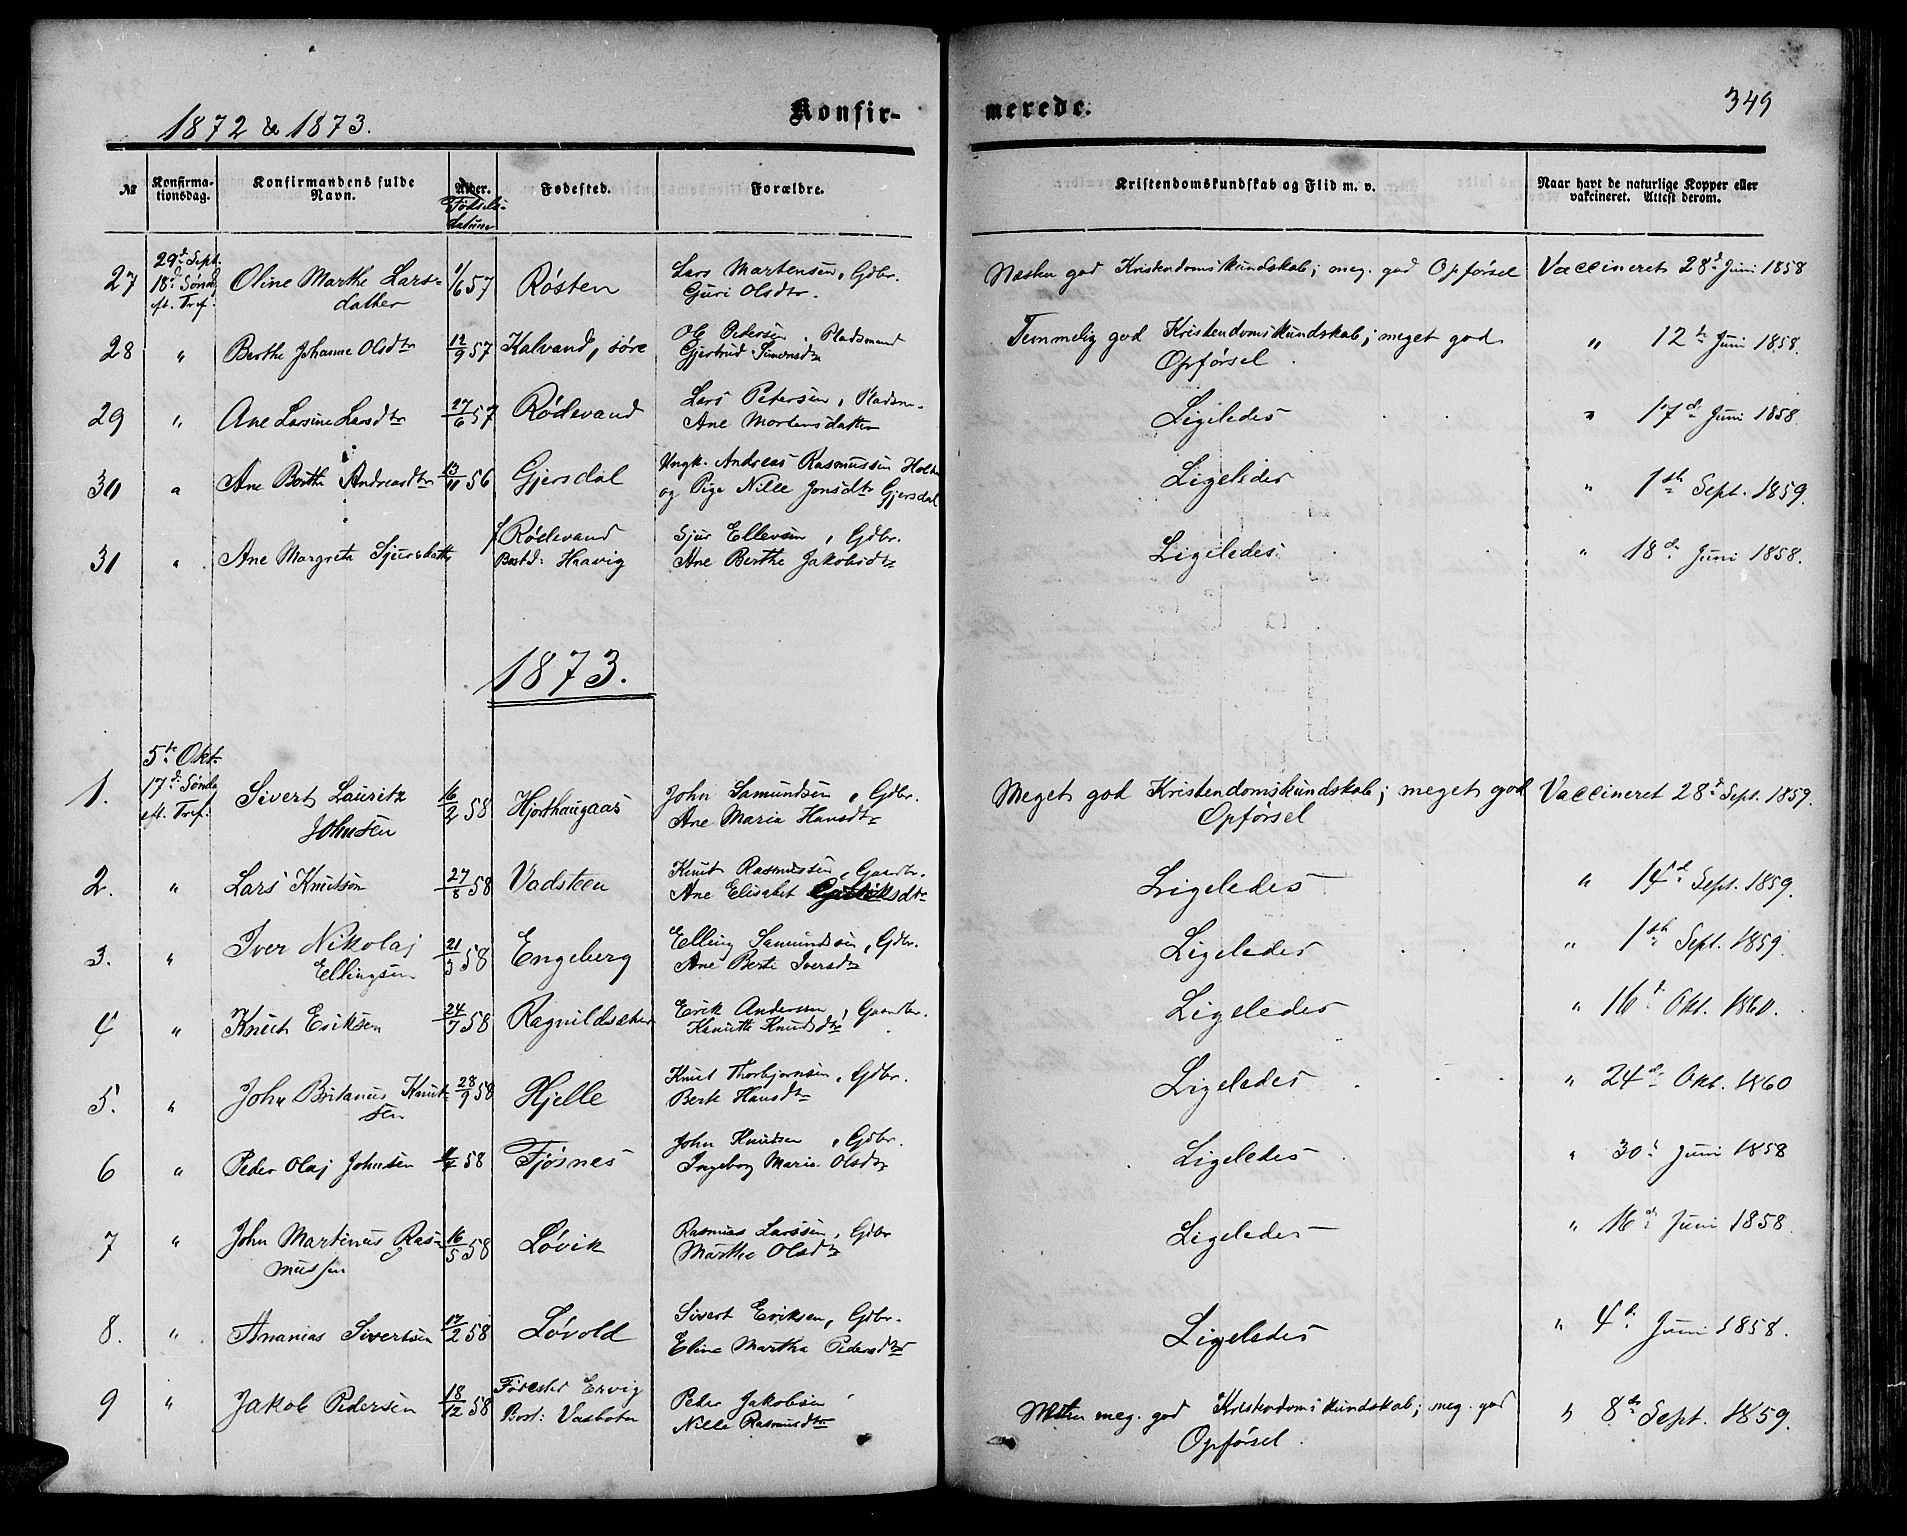 1872 & 1873.
Konfir-
merede.
349
№
Konfirma-
tionsdag.
Konfirmandens fulde
Navn.
Alder.
Fødsels-
datum
Fødested.
Forældre.
Kristendomskundskab og Flid m. v.
Naar havt de naturlige Kopper eller
vakcineret. Attest derom.
27 29d Sept. 18d Sønd. eft. Tref. Oline Marthe Lars-
datter 1/6 57 Røsten Lars Martensen, Gdbr.
Guri Olsdtr.
Næsten god Kristendomskundskab; meg. god Opførsel Vaccineret 28d Juni 1858
28 " Berthe Johanne Olsdtr 12/9 57 Kalvand, søre Ole Pedersen, Pladsmand
Gjertrud Simonsdtr
Temmelig god Kristendomskundskab; meget god
Opførsel. " 12te Juni 1858.
29 " Ane Larsine Larsdtr 27/6 57 Rødevand Lars Petersen, Pladsm.
Ane Mortensdatter
Ligeledes " 17de Juni 1858.
30 " Ane Berthe Andreasdtr 13/11 56 Gjersdal Ungk. Andreas Rasmussen Holen
og Pige Nille Jonsdtr Gjersdal
Ligeledes " 1ste Sept. 1859.
31 " Ane Margrete Sjursdattr f Rødevand
Bosd: Haavig Sjur Ellevsen, Gdbr.
Ane Berthe Jakobsdtr
Ligeledes. " 18de Juni 1858.
1873.
1. 5te Okt. 17d Sønda eft. Tref. Sivert Lauritz
Johnsen 16/2 58 Hjorthaugaas John Samundsen, Gdbr.
Ane Maria Hansdtr
Meget god Kristendomskundskab; meget god
Opførsel Vaccineret 28d Sept. 1859.
2. " Lars Knutsøn 27/8 58 Vadsteen Knut Rasmussen, Gaardbr.
Ane Elisabet
Ligeledes " 14d Sept. 1859.
3. " Iver Nikolaj
Ellingsen 21/3 58 Engeberg Elling Samundsen, Gdbr.
Ane Berte Iversdtr
Ligeledes " 1ste Sept. 1859.
4 " Knut Eriksen 24/7 58 Ragnildsaker Erik Andersen, Gaardbr.
Kanutte Knudsdtr
Ligeledes " 16d Okt. 1860.
5. " John Britanus Knut-
sen 28/9 58 Hjelle Knut Thorbjørnsen, Gdbr.
Berte Hansdtr
Ligeledes " 24de Okt. 1860
6 " Peder Olaj Johnsen 58 Fjøsnes John Knudsen, Gdbr.
Ingebor Marie Olsdtr
Ligeledes " 30d Juni 1858
7 " John Martinus Ras-
mussen 16/5 58 Løvik Rasmus Larssen, Gdbr
Marthe Olsdtr
Ligeledes " 16de Juni 1858.
8. " Ananias Sivertsen 17/2 58 Løvold Sivert Eriksen, Gdbr.
Eline Martha Pedersdtr
Ligeledes " 4d Juni 1858.
9 " Jakob Pedersen 18/12 58 Fødested Ervig
Bost: Vasbotn Peder Jakobsen
Nille Rasmusdtr
meg. god Kristendomskundskab; meg. god
Opførsel. " 8de Sept. 1859.